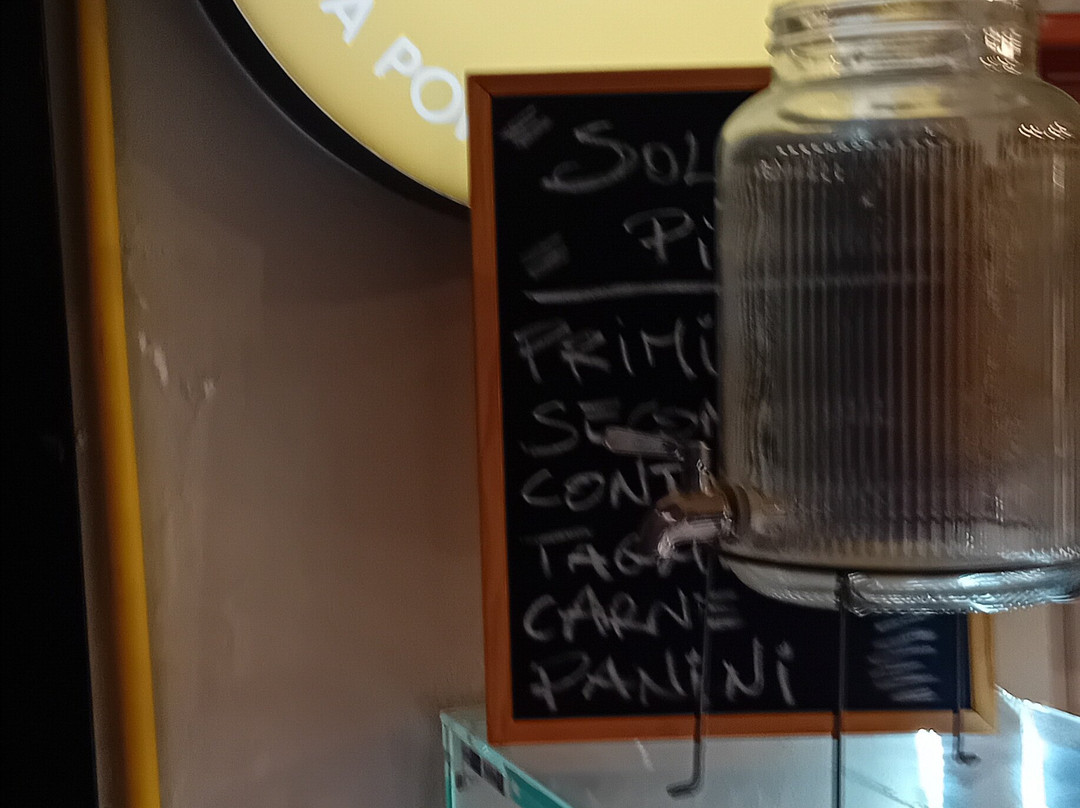 A POI
SOL
Pi
PRiMi
SECON
CONT
TAGL
CARNE
PANiNi